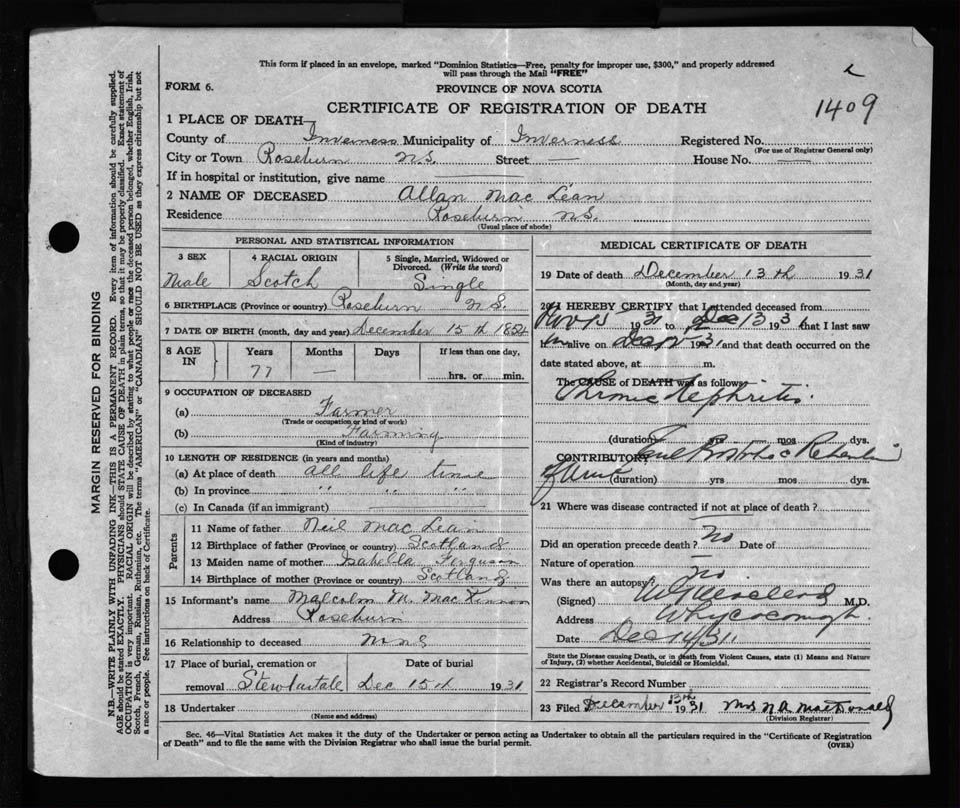 This form if placed in an envelope, marked "Dominion Statistics—Free, penalty for improper use, $300," and properly addressed
will pass through the Mail "FREE"
FORM 6.
PROVINCE OF NOVA SCOTIA
1409
CERTIFICATE OF REGISTRATION OF DEATH
1 PLACE OF DEATH—
County of Inverness Municipality of Inverness Registered No.
(For use of Registrar General only)
City or Town Roseburn N.S. Street — House No. —
If in hospital or institution, give name —
2 NAME OF DECEASED Allan Mac Lean
Residence Roseburn N.S.
(Usual place of abode)
PERSONAL AND STATISTICAL INFORMATION
3 SEX
Male
4 RACIAL ORIGIN
Scotch
5 Single, Married, Widowed or
Divorced. (Write the word)
Single
6 BIRTHPLACE (Province or country) Roseburn N.S.
7 DATE OF BIRTH (month, day and year) December 15th 1854
8 AGE IN
Years Months Days If less than one day,
77 — hrs. or min.
9 OCCUPATION OF DECEASED
(a) Farmer
(Trade or occupation or kind of work)
(b) Farming
(Kind of industry)
10 LENGTH OF RESIDENCE (in years and months)
(a) At place of death all life time
(b) In province " " — " "
(c) In Canada (if an immigrant) —
Parents
11 Name of father Neil Mac Lean
12 Birthplace of father (Province or country) Scotland
13 Maiden name of mother Isabella Ferguson
14 Birthplace of mother (Province or country) Scotland
15 Informant's name Malcolm M. Mac Kinnon
Address Roseburn
16 Relationship to deceased None
17 Place of burial, cremation or Date of burial
removal Stewartdale Dec 15th 1931
18 Undertaker
(Name and address)
MEDICAL CERTIFICATE OF DEATH
19 Date of death December 13th 1931
(Month, day and year)
20 I HEREBY CERTIFY that I attended deceased from
1931 to Dec 13 1931 that I last saw
him alive on Dec 1931 and that death occurred on the
date stated above, at m.
The CAUSE of DEATH was as follows
Chronic Nephritis.
(duration) yrs mos dys.
CONTRIBUTORY
of Urine (duration) yrs mos dys.
21 Where was disease contracted if not at place of death?
Did an operation precede death? No Date of
Nature of operation
Was there an autopsy No
(Signed) M.D.
Address Whycocomagh.
Date Dec 14/31
State the Disease causing Death, or in death from Violent Causes, state (1) Means and Nature
of Injury, (2) whether Accidental, Suicidal or Homicidal.
22 Registrar's Record Number
23 Filed December 13th 1931 Mrs N.A. MacDonald
(Division Registrar)
Sec. 46—Vital Statistics Act makes it the duty of the Undertaker or person acting as Undertaker to obtain all the particulars required in the "Certificate of Registration
of Death" and to file the same with the Division Registrar who shall issue the burial permit.
(OVER)
MARGIN RESERVED FOR BINDING
N.B.—WRITE PLAINLY WITH UNFADING INK—THIS IS A PERMANENT RECORD. Every item of information should be carefully supplied.
AGE should be stated EXACTLY. PHYSICIANS should STATE CAUSE OF DEATH in plain terms, so that it may be properly classified. Exact statement of
OCCUPATION is very important. RACIAL ORIGIN will be described by stating to what people or race the deceased person belonged, whether English, Irish,
Scotch, French, German, Russian, Ruthenian, etc. The terms "AMERICAN" or "CANADIAN" SHOULD NOT BE USED as they express citizenship but not
a race or people. See instructions on back of Certificate.